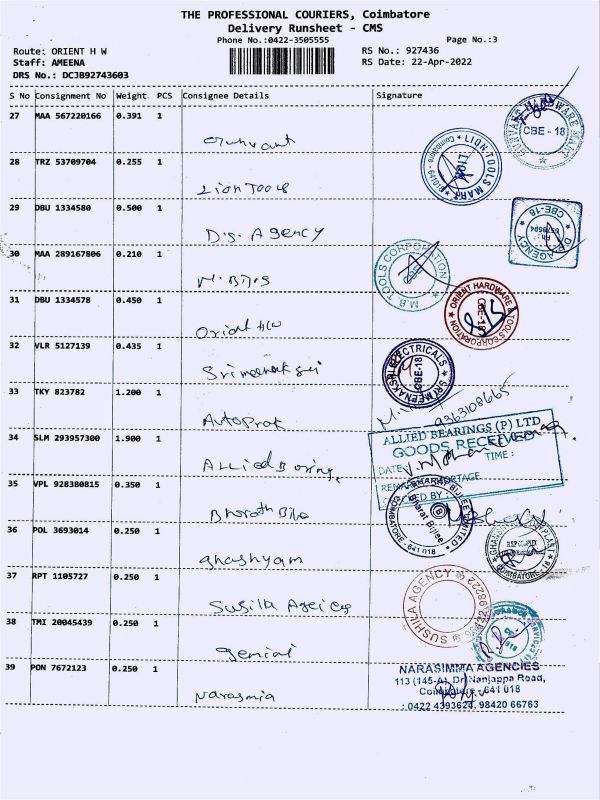 THE PROFESSIONAL COURIERS, Coimbatore
Delivery Runsheet - CMS
Phone No.:0422-3505555
Page No.:3
Route: ORIENT H W
RS No.: 927436
Staff: AMEENA
RS Date: 22-Apr-2022
DRS No.: DCJB92743603
S No Consignment No Weight PCS Consignee Details Signature
27 MAA 567220166 0.391 1
HARDWARE MART
CBE - 18
28 TRZ 53709704 0.255 1
Lion Tools
LION TOOLS MART
LION
Coimbatore - 641018
29 DBU 1334580 0.500 1
D.S. Agency
AGENCY
CBE-18
30 MAA 289167806 0.210 1
M.B. TOOLS CORPORATION
CBE
31 DBU 1334578 0.450 1
Orient HW
ORIENT HARDWARE & TOOLS CORPORATION
CBE-18
32 VLR 5127139 0.435 1
SRI MEENAKSHI ELECTRICALS
CBE-18
33 TKY 823782 1.200 1
9363108665
34 SLM 293957300 1.900 1
ALLIED BEARINGS (P) LTD
GOODS RECEIVED
DATE
TIME :
35 VPL 928380815 0.350 1
BHARAT BIJLEE LIMITED
Bharat Bijlee
COIMBATORE - 641 018
36 POL 3693014 0.250 1
ghashyam
COIMBATORE
37 RPT 1105727 0.250 1
SUSHILA AGENCY
38 TMI 20045439 0.250 1
39 PON 7672123 0.250 1
Narasmia
NARASIMMA AGENCIES
113 (145-A), Dr. Nanjappa Road,
Coimbatore - 641 018
: 0422 4393624, 98420 66763